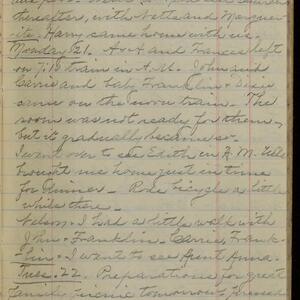 thereafter, with Netta and Marguer-
ite. Harry came home with us.
Monday 21. A. A and Frances left
on 7:15 train in A.M. John and
Carrie and baby Franklin &
came on the noon train. The
room was not ready for them,
but it gradually became so.
I went over to see Edith in P.M.
brought me home just in time
for dinner. Rode bicycle a little
while there.
Nelson & I had a little walk with
John & Franklin. Carrie, Frank-
lin & I went to see Aunt Anna.
Tues. 22. Preparations for great
family picnic tomorrow.